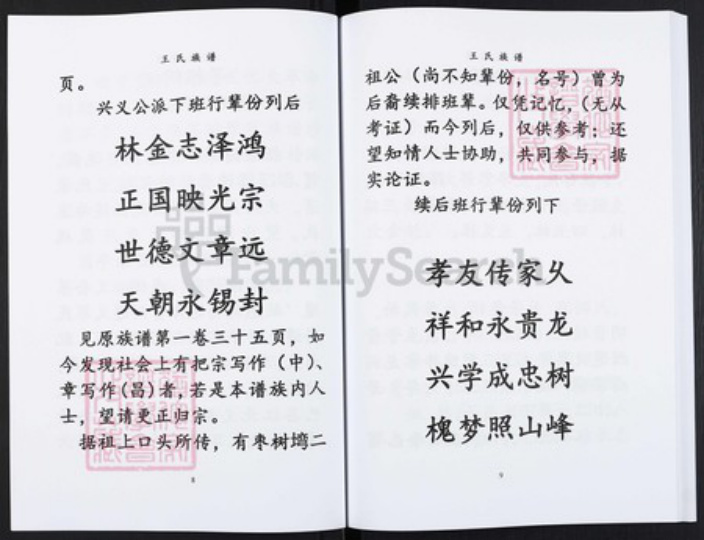 王氏族谱
页。
兴义公派下班行辈份列后
林金志泽鸿
正国映光宗
世德文章远
天朝永锡封
见原族谱第一卷三十五页，如
今发现社会上有把宗写作（中）、
章写作（昌）者，若是本谱族内人
士，望请更正归宗。
据祖上口头所传，有枣树塆二
8
王氏族谱
祖公（尚不知辈份，名号）曾为
后裔续排班辈。仅凭记忆，（无从
考证）而今列后，仅供参考；还
望知情人士协助，共同参与，据
实论证。
续后班行辈份列下
孝友传家乆
祥和永贵龙
兴学成忠树
槐梦照山峰
9
FamilySearch